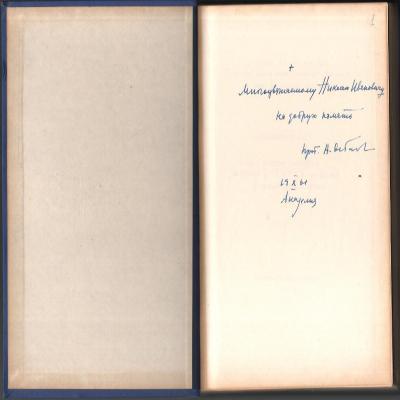 1
+
Многоуважаемому Николаю Ивановичу
на добрую память
прот. А.
19 X 61
Академия